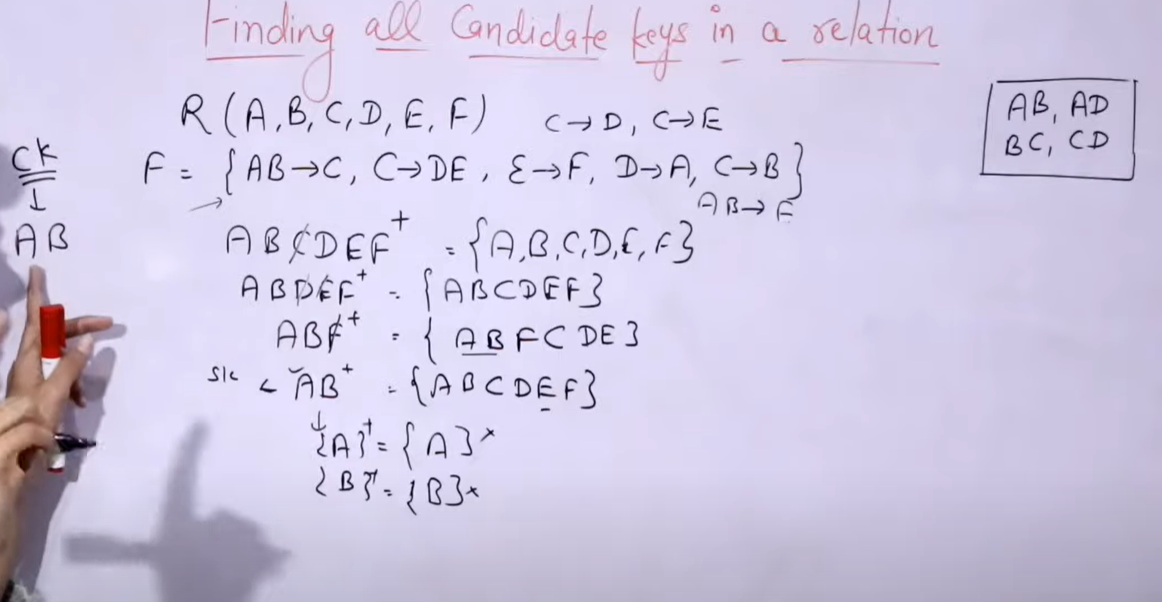 Finding all Candidate keys in a relation
R(A,B,C,D,E,F) C→D, C→E
F = {AB→C, C→DE, E→F, D→A, C→B}
AB→F
AB, AD
BC, CD
CK
1
AB
ABCDEF⁺ = {A,B,C,D,E,F}
ABDEF⁺ = {ABCDEF}
ABF⁺ = {ABFCDE}
SK < AB⁺ = {ABCDEF}
{A}⁺ = {A}×
{B}⁺ = {B}×